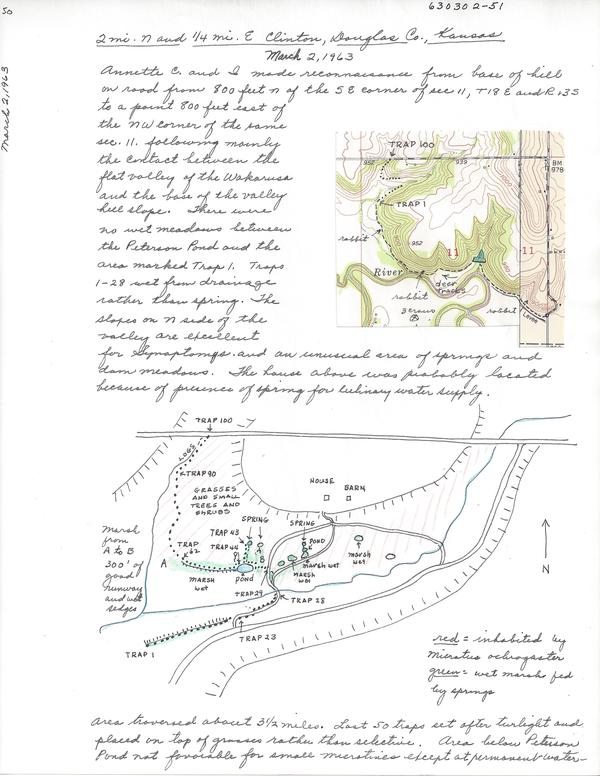 50
630302-51
March 2, 1963
2 mi. N and 1/4 mi. E Clinton, Douglas Co., Kansas
March 2, 1963
Annette C. and I made reconnaissance from base of hill
on road from 800 feet n of the SE corner of sec 11, T13 E and R 13S
to a point 800 feet east of
the NW corner of the same
sec. 11. following mainly
the contact between the
flat valley of the Wakarusa
and the base of the valley
hill slope. There were
no wet meadows between
the Peterson Pond and the
area marked Trap 1. Traps
1-28 wet from drainage
rather than spring. The
slopes on N side of the
valley are excellent
for Synaptomys and an unusual area of springs and
dam meadows. The house above was probably located
because of presence of spring for culinary water supply.
TRAP 100
952
939
BM
978
TRAP 1
rabbit
952
11
11
River
deer
tracks
rabbit
3 crows
rabbit
Levee
TRAP 100
LOGS
TRAP 90
GRASSES
AND SMALL
TREES AND
SHRUBS
HOUSE
BARN
SPRING
SPRING
TRAP 43
TRAP 44
POND
Marsh
from
A to B
300' of
good
runway
and wet
sedges
TRAP
62
A
B
MARSH
WET
POND
MARSH WET
MARSH
WET
MARSH
WET
TRAP 29
TRAP 28
N
TRAP 23
TRAP 1
red = inhabited by
Microtus ochrogaster
green = wet marsh fed
by springs
Area traversed about 3 1/2 miles. Last 50 traps set after twilight and
placed on top of grasses rather than selective. Area below Peterson
Pond not favorable for small microtines except at permanent water-